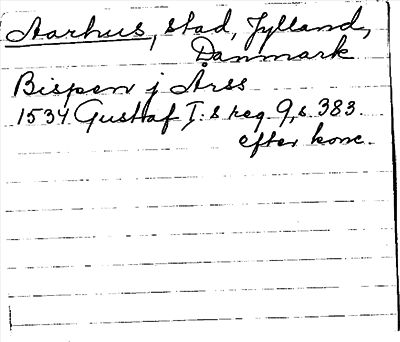 Aarhus, stad, Jylland,
Danmark
Bispen j Arss
1534 Gustaf I:s reg. 9, s. 383.
efter konc.